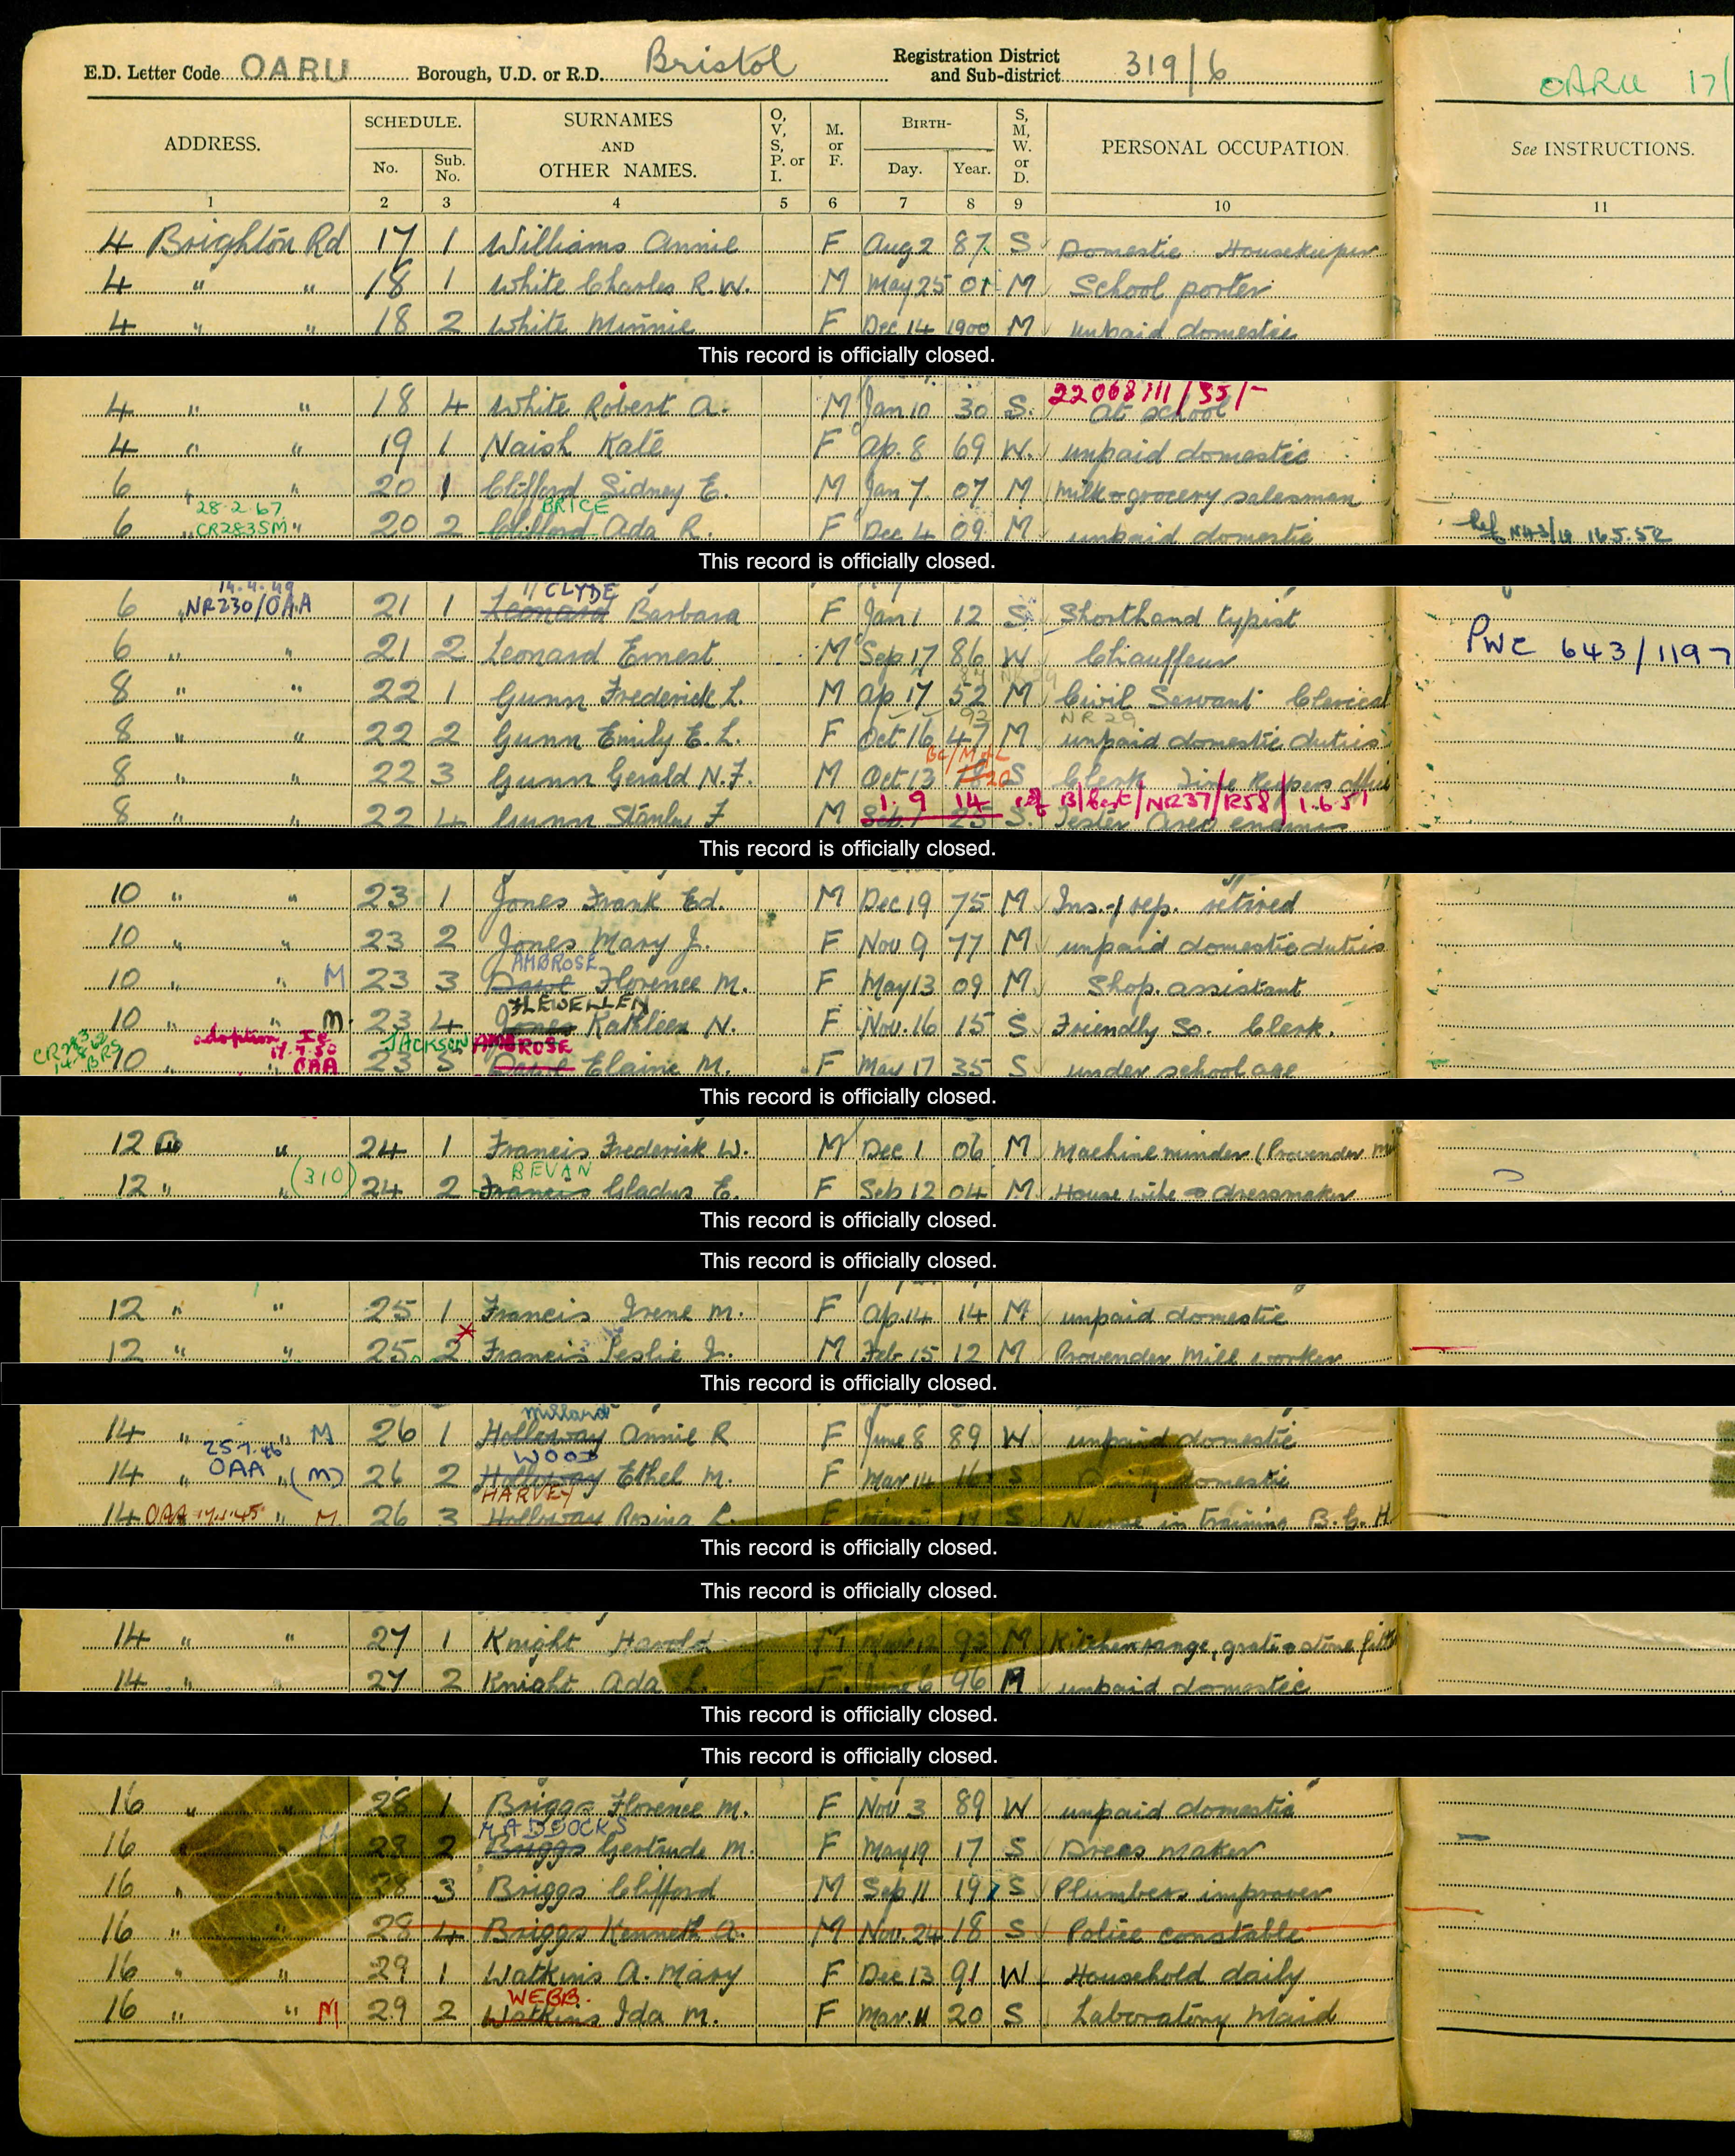 E.D. Letter Code OARU Borough, U.D. or R.D. Bristol Registration District and Sub-district 319/6
OARU 17/
ADDRESS. SCHEDULE. No. Sub. No. SURNAMES AND OTHER NAMES. O, V, S, P. or I. M. or F. BIRTH- Day. Year. S, M, W. or D. PERSONAL OCCUPATION. See INSTRUCTIONS.
1 2 3 4 5 6 7 8 9 10 11
4 Brighton Rd 17 1 Williams Annie F Aug 2 87 S Domestic Housekeeper
4 " " 18 1 White Charles R. W. M May 25 01 M School porter
4 " " 18 2 White Minnie F Dec 14 1900 M unpaid domestic
This record is officially closed.
22068111/35/-
4 " " 18 4 White Robert A. M Jan 10 30 S. at school
4 " " 19 1 Naish Kate F Ap. 8 69 W. unpaid domestic
6 " " 20 1 Clifford Sidney E. M Jan 7 07 M milk & grocery salesman
28.2.67 BRICE
6 " CR283SM " 20 2 Clifford Ada R. F Dec 4 09 M unpaid domestic
This record is officially closed.
14.4.49 CLYDE
6 " NR230/OAA 21 1 Leonard Barbara F Jan 1 12 S Shorthand typist
6 " " 21 2 Leonard Ernest M Sep 17 86 W Chauffeur PWC 643/1197
8 " " 22 1 Gunn Frederick L. M Ap 17 52 M Civil Servant Clerical
92 NR29
8 " " 22 2 Gunn Emily E. L. F Oct 16 47 M unpaid domestic duties
8 " " 22 3 Gunn Gerald N. F. M Oct 13 20 S Clerk Time Keepers office
1. 9 14 B/Cert/NR37/R58/1.6.51
8 " " 22 4 Gunn Stanley F M Sep 1 S. Tester Aero engines
This record is officially closed.
10 " " 23 1 Jones Frank Ed. M Dec 19 75 M Ins. rep. retired
10 " " 23 2 Jones Mary J. F Nov 9 77 M unpaid domestic duties
AMBROSE
10 " " M 23 3 Florence M. F May 13 09 M Shop assistant
FLEWELLEN
10 " " M. 23 4 Jones Kathleen N. F Nov. 16 15 S Friendly So. Clerk.
adoption JACKSON AMBROSE
10 " " OAA 23 5 Elaine M. F May 17 35 S under school age
This record is officially closed.
12 " " 24 1 Francis Frederick W. M Dec 1 06 M Machine minder (Provender
BEVAN
12 " " (310) 24 2 Francis Gladys E. F Sep 12 04 M House wife dressmaker
This record is officially closed.
This record is officially closed.
12 " " 25 1 Francis Irene M. F Ap. 14 14 M unpaid domestic
12 " " 25 2 Francis Leslie J. M Feb 15 12 M Provender Mill worker
This record is officially closed.
Millard
14 " " M 26 1 Holloway Annie R F June 8 89 W unpaid domestic
25.7.46 WOOD
14 " OAA (M) 26 2 Holloway Ethel M. F Mar. 14 16 S Daily domestic
HARVEY
14 OAA " M 26 3 Holloway Rosina L. F S Nurse in training B. G. H
This record is officially closed.
This record is officially closed.
14 " " 27 1 Knight Harold M 92 M Kitchen range, grate & stone
14 " " 27 2 Knight Ada L. F. 6 96 M unpaid domestic
This record is officially closed.
This record is officially closed.
16 " " 28 1 Briggs Florence M. F Nov. 3 89 W unpaid domestic
MADDOCKS
16 " " M 28 2 Briggs Gertrude M. F May 19 17 S Dress maker
16 " " 28 3 Briggs Clifford M Sep. 11 19 S Plumbers improver
16 " " 28 4 Briggs Kenneth A. M Nov. 24 18 S Police constable
16 " " 29 1 Watkins A. Mary F Dec 13 91 W Household daily
WEBB.
16 " " M 29 2 Watkins Ida M. F Mar. 11 20 S Laboratory Maid